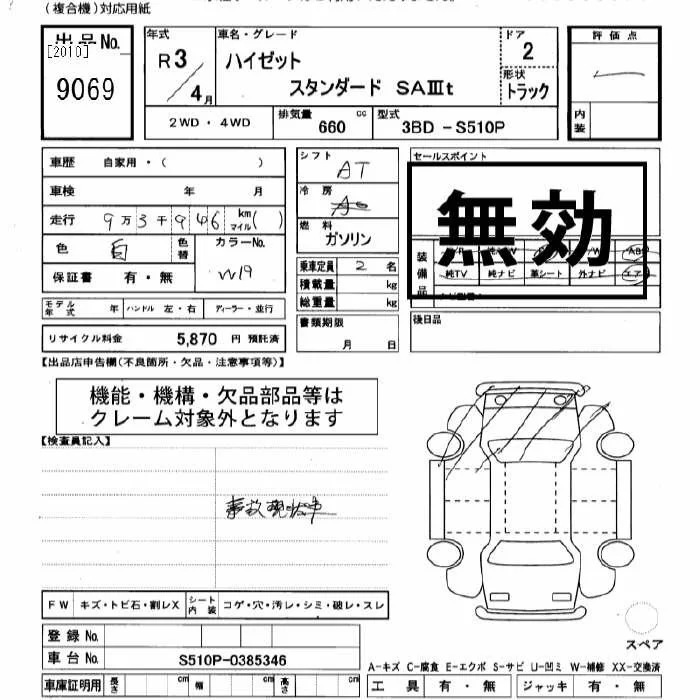 (複合機)対応用紙
出品No.
[2010]
9069
年式
R3/4月
車名・グレード
ハイゼット
スタンダード SAⅢt
ドア
2
形状
トラック
評価点
内装
2WD・4WD
排気量 660 cc
型式 3BD-S510P
車歴 自家用・( )
車検 年 月
走行 9万3千946 km マイル( )
色 白
色替
カラーNo.
W19
保証書 有・無
シフト
AT
冷房
AC
燃料
ガソリン
乗車定員 2 名
積載量 kg
総重量 kg
書類期限
月 日
セールスポイント
無効
装備品
純TV 純ナビ 革シート 外ナビ エア
後日品
モデル年式 年 ハンドル 左・右 ディーラー・並行
リサイクル料金 5,870 円 預託済
【出品店申告欄(不良箇所・欠品・注意事項等)】
機能・機構・欠品部品等は
クレーム対象外となります
【検査員記入】
事故現状車
FW キズ・トビ石・割レX シート内装 コゲ・穴・汚レ・シミ・破レ・スレ
登録No.
車台No. S510P-0385346
車庫証明用 長さ cm 幅 cm 高さ cm
スペア
A-キズ C-腐食 E-エクボ S-サビ U-凹ミ W-補修 XX-交換済
工具 有・無 ジャッキ 有・無